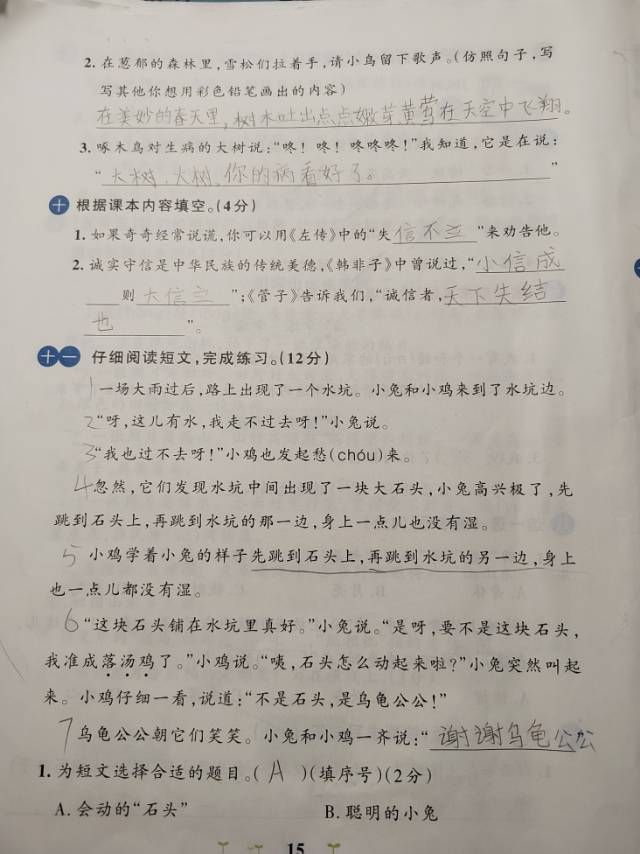 2. 在葱郁的森林里,雪松们拉着手,请小鸟留下歌声。(仿照句子,写
写其他你想用彩色铅笔画出的内容)
在美妙的春天里,树木吐出点点嫩芽黄莺在天空中飞翔。
3. 啄木鸟对生病的大树说:“咚!咚!咚咚咚!”我知道,它是在说:
“大树、大树,你的病看好了。”
十 根据课本内容填空。(4分)
1. 如果奇奇经常说谎,你可以用《左传》中的“失信不立”来劝告他。
2. 诚实守信是中华民族的传统美德,《韩非子》中曾说过,“小信成
则大信立”;《管子》告诉我们,“诚信者,天下失结
也”。
十一 仔细阅读短文,完成练习。(12分)
1 一场大雨过后,路上出现了一个水坑。小兔和小鸡来到了水坑边。
2 “呀,这儿有水,我走不过去呀!”小兔说。
3 “我也过不去呀!”小鸡也发起愁(chóu)来。
4 忽然,它们发现水坑中间出现了一块大石头,小兔高兴极了,先
跳到石头上,再跳到水坑的那一边,身上一点儿也没有湿。
5 小鸡学着小兔的样子先跳到石头上,再跳到水坑的另一边,身上
也一点儿都没有湿。
6 “这块石头铺在水坑里真好。”小兔说。“是呀,要不是这块石头,
我准成落汤鸡了。”小鸡说。“咦,石头怎么动起来啦?”小兔突然叫起
来。小鸡仔细一看,说道:“不是石头,是乌龟公公!”
7 乌龟公公朝它们笑笑。小兔和小鸡一齐说:“谢谢乌龟公公
1. 为短文选择合适的题目。( A )(填序号)(2分)
A. 会动的“石头” B. 聪明的小兔
15